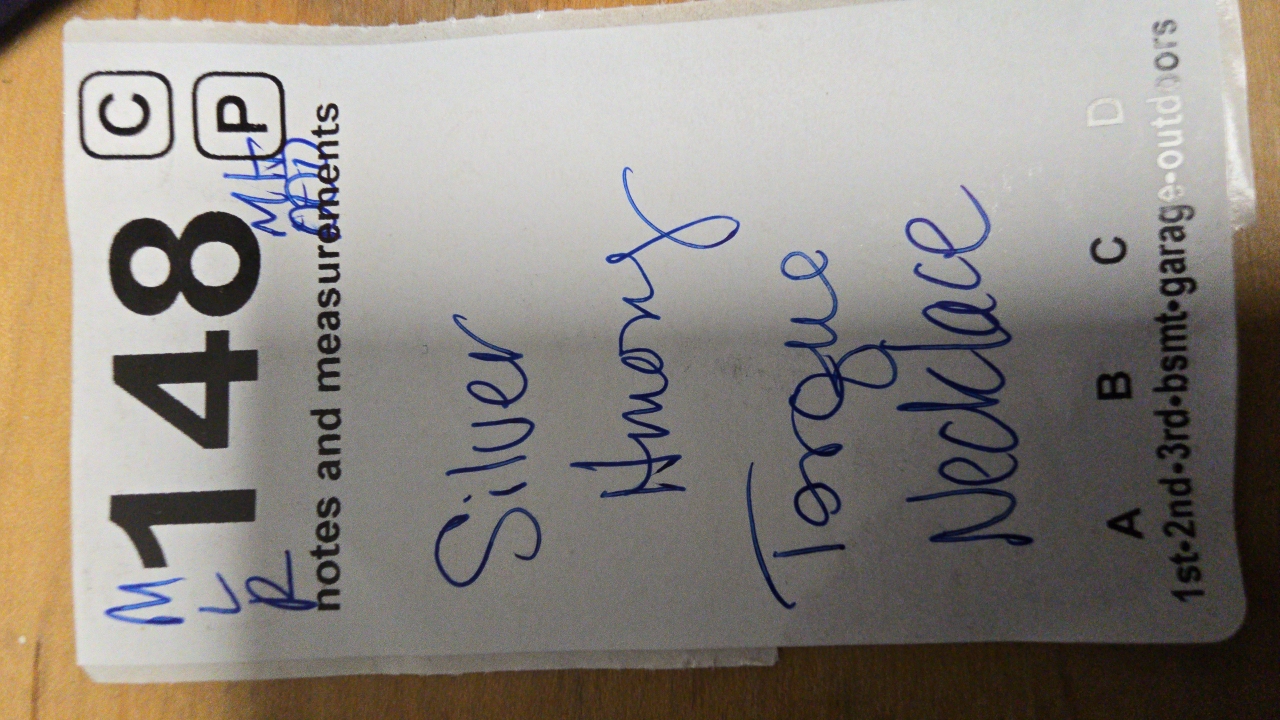 M
L
R
148 C
P
notes and measurements
Silver
Hmong
Torque
Necklace
A B C D
1st•2nd•3rd•bsmt•garage•outdoors